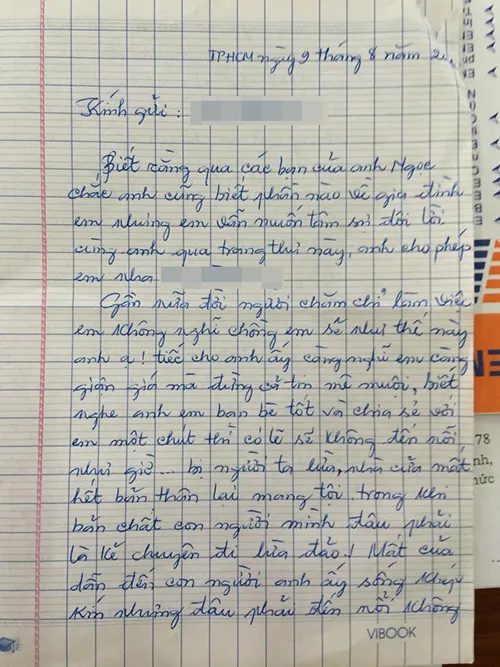 TPHCM ngày 9 tháng 8 năm 2
Kính gửi :
Biết rằng qua các bạn của anh Ngọc
chắc anh cũng biết phần nào về gia đình
em nhưng em vẫn muốn tâm sự đôi lời
cùng anh qua trang thư này, anh cho phép
em nha
Gần nửa đời người chăm chỉ làm việc
em không nghĩ chồng em sẽ như thế này
anh ạ! tiếc cho anh ấy càng nghĩ em càng
giận giá mà đừng cả tin mê muội, biết
nghe anh em bạn bè tốt và chia sẻ với
em một chút thì có lẽ sẽ không đến nỗi
như giờ... bị người ta lừa, nhà cửa mất
hết bản thân lại mang tội. trong khi
bản chất con người mình đâu phải
là kẻ chuyên đi lừa đảo! Mất của
dẫn đến con người anh ấy sống khép
kín nhưng đâu phải đến nỗi không
ViBOOK
EN
78
nh,
hức